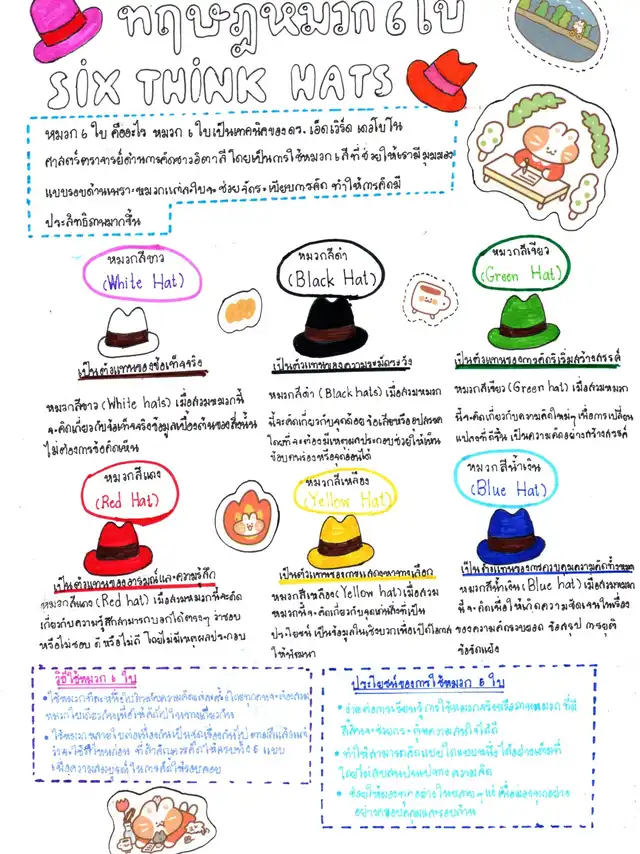 ทฤษฎีหมวก 6 ใบ
SIX THINK HATS
หมวก 6 ใบ คืออะไร หมวก 6 ใบเป็นเทคนิคของดร. เอ็ดเวิร์ด เดอโบโน
ศาสตร์ตราจารย์ด้านการคิดชาวอิตาลี โดยเป็นการใช้หมวก 6 สีที่ช่วยให้เรามีมุมมอง
แบบรอบด้านเพราะหมวกแต่ละใบจะช่วยจัดระเบียบการคิด ทำให้การคิดมี
ประสิทธิภาพมากขึ้น
หมวกสีขาว
(White Hat)
เป็นตัวแทนของข้อเท็จจริง
หมวกสีขาว (White hats) เมื่อสวมหมวกนี้
จะคิดเกี่ยวกับข้อเท็จจริงข้อมูลเบื้องต้นของสิ่งนั้น
ไม่ต้องการข้อคิดเห็น
หมวกสีดำ
(Black Hat)
เป็นตัวแทนของความระมัดระวัง
หมวกสีดำ (Black hats) เมื่อสวมหมวก
นี้จะคิดเกี่ยวกับจุดด้อย ข้อเสียหรืออุปสรรค
โดยที่จะต้องมีเหตุผลประกอบช่วยให้เห็น
ข้อบกพร่องหรือจุดอ่อนได้
หมวกสีเขียว
(Green Hat)
เป็นตัวแทนของการคิดริเริ่มสร้างสรรค์
หมวกสีเขียว (Green hat) เมื่อสวมหมวก
นี้จะคิดเกี่ยวกับความคิดใหม่ๆ เพื่อการเปลี่ยน
แปลงที่ดีขึ้น เป็นความคิดอย่างสร้างสรรค์
หมวกสีแดง
(Red Hat)
เป็นตัวแทนของอารมณ์และความรู้สึก
หมวกสีแดง (Red hat) เมื่อสวมหมวกนี้จะคิด
เกี่ยวกับความรู้สึกสามารถบอกได้ตรงๆ ว่าชอบ
หรือไม่ชอบ ดีหรือไม่ดี โดยไม่มีเหตุผลประกอบ
หมวกสีเหลือง
(Yellow Hat)
เป็นตัวแทนของการแสดงหาทางเลือก
หมวกสีเหลือง (Yellow hat) เมื่อสวม
หมวกนี้จะคิดเกี่ยวกับจุดเด่นสิ่งที่เป็น
ประโยชน์ เป็นข้อมูลในเชิงบวกเพื่อเปิดโอกาส
ให้พัฒนา
หมวกสีน้ำเงิน
(Blue Hat)
เป็นตัวแทนของการควบคุมความคิดทั้งหมด
หมวกสีน้ำเงิน (Blue hat) เมื่อสวมหมวก
นี้จะคิดเพื่อให้เกิดความชัดเจนในเรื่อง
ของความคิดรวบยอด ข้อสรุป การยุติ
ข้อขัดแย้ง
วิธีใช้หมวก 6 ใบ
หมวกใบเดียวกันเพื่อให้คิดไปในทางเดียวกัน
เพื่อความสมบูรณ์ในการคิดให้รอบคอบ
ประโยชน์ของการใช้หมวก 6 ใบ
ง่ายต่อการเรียนรู้ การใช้หมวกหรือเรื่องการหมวก ที่มี
ทำให้สามารถคิดแบบใดแบบหนึ่งได้อย่างเต็มที่
โดยไม่สับสนปนเปทางความคิด
อย่างรอบคอบและรอบด้าน